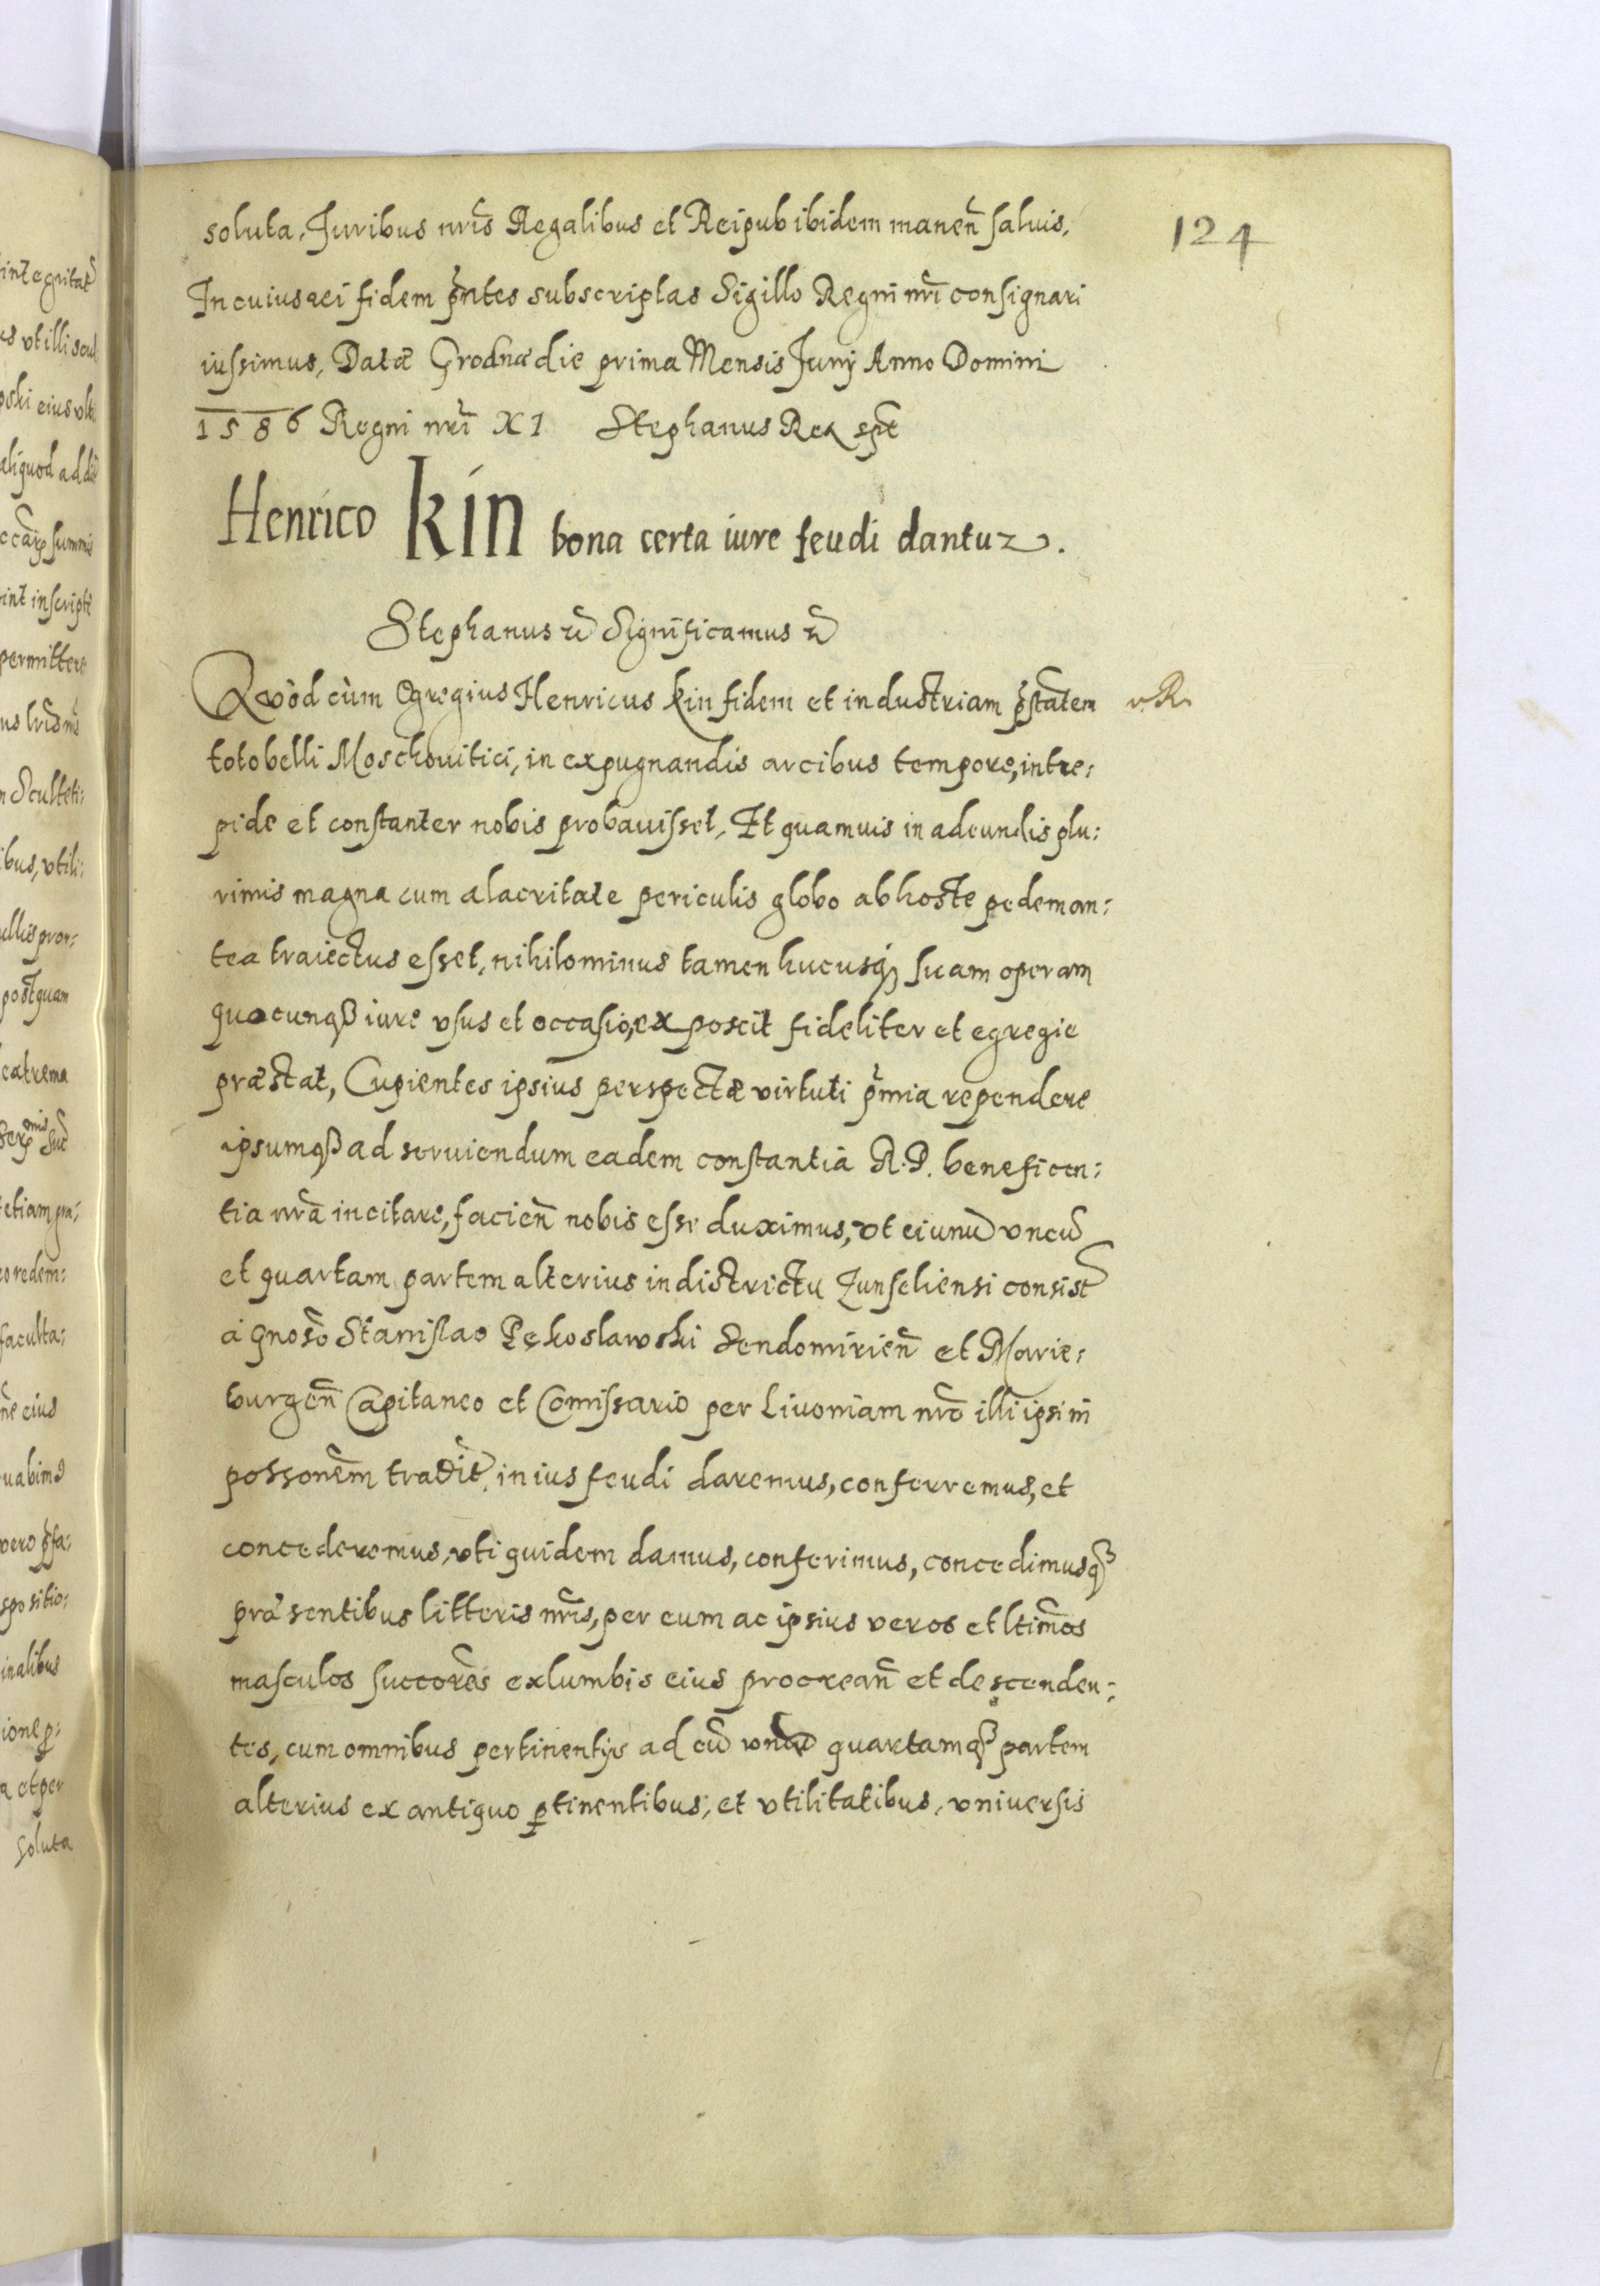 124
soluta, Iuribus nr̃is Regalibus et Reipub ibidem maneñ saluis,
In cuius rei fidem p̃ntes subscriptas Sigillo Regni nr̃i consignari
iussimus, Datæ Grodnæ die prima Mensis Iunij Anno Domini
1586 Regni nr̃i XI Stephanus Rex spt̃
Henrico Kin bona certa iure feudi dantur.
Stephanus et̃ Significamus et̃
Quòd cùm Egregius Henricus Kin fidem et industriam p̃stãtem
toto belli Moschouitici, in expugnandis arcibus tempore, intre:
pide et constanter nobis probauisset, Et quamuis in adeundis plu:
rimis magna cum alacritate periculis globo ab hoste pedem an:
tea traiectus esset, nihilominus tamen hucusq3 suam operam
quocunq3 iure vsus et occasio, exposcit fideliter et egregie
præstat, Cupientes ipsius perspectæ virtuti p̃mia rependere
ipsumq3 ad seruiendum eadem constantia R.P. beneficen:
tia nr̃a incitare, facieñ nobis esse duximus, vt ei unũ vncũ
et quartam partem alterius in districtu Zunseliensi consist̃
à gnoso Stanislao Pękoslawski Sendomirieñ et Marie:
burgeñ Capitaneo et Com̃issario per Livoniam nr̃o illi ipsi in
possonẽm tradit̃, in ius feudi daremus, conferremus, et
concederemus, vti quidem damus, conferimus, concedimusq3
præsentibus litteris nr̃is, per eum ac ipsius veros et ltim̃os
masculos succores̃ ex lumbis eius procreañ et descenden:
tes, cum omnibus pertinentijs ad eũ vncũ quartamq3 partem
alterius ex antiquo ptinentibus, et vtilitatibus, vniuersis